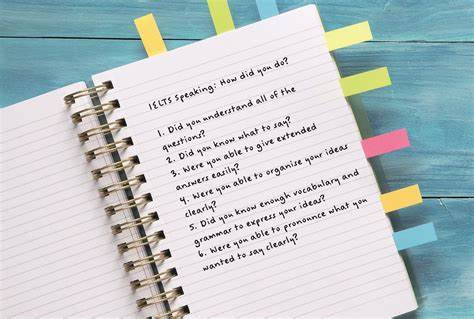 IELTS Speaking: How did you do?
1. Did you understand all of the
questions?
2. Did you know what to say?
3. Were you able to give extended
answers easily?
4. Were you able to organise your ideas
clearly?
5. Did you know enough vocabulary and
grammar to express your ideas?
6. Were you able to pronounce what you
wanted to say clearly?